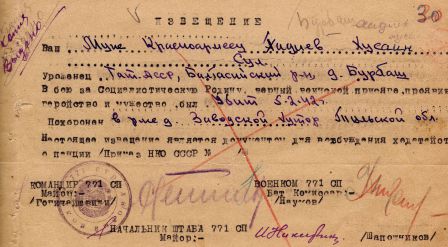 30
ИЗВЕЩЕНИЕ
Ваш Муж Красноармеец Хусаин
Уроженец Тат.Асср, р-н д. Бурбаш
В бою за Социалистическую Родину, верный воинской присяге, проявив
геройство и мужество, был Убит 5-2-42г.
Похоронен в р-не д. Заводской Хутор Тульской обл.
Настоящее извещение является документом для возбуждения ходатайств
о пенции /Приказ НКО СССР №
КОМАНДИР 771 СП
Майор:-
ВОЕНКОМ 771 СП
Бат Комиссар:-
/Науков/
НАЧАЛЬНИК ШТАБА 771 СП
Майор:-
/Шапошников/